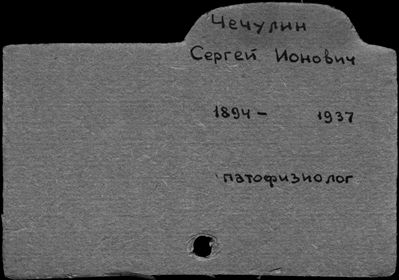 Чечулин
Сергей Ионович
1894 - 1937
патофизиолог